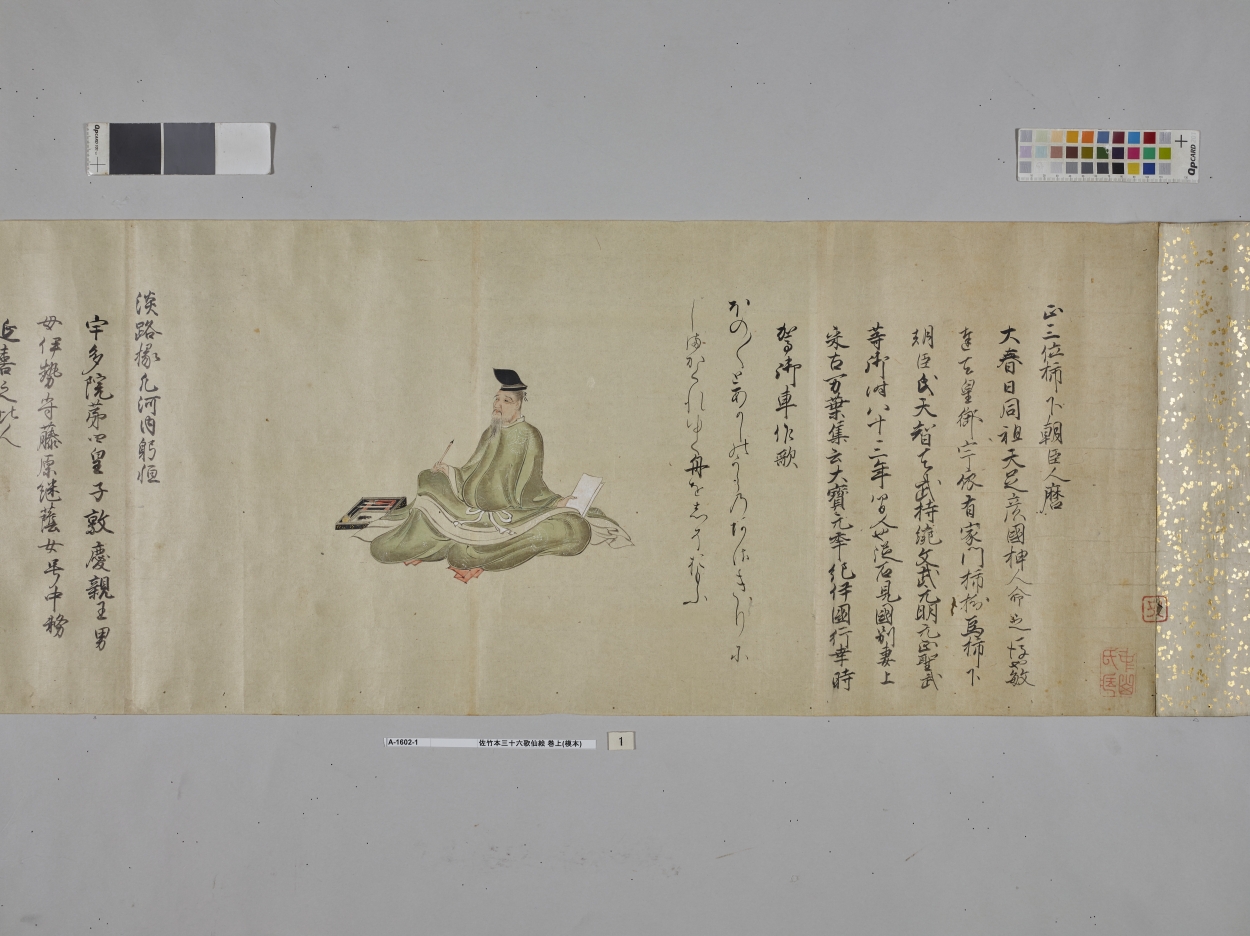 正三位柿下朝臣人麿
大春日同祖天足彦國押人命之後也敏
達天皇御宇依有家門柿樹為柿下
朝臣氏天智天武持統文武元明元正聖武
等御時八十二年間人也従石見國別妻上
来古万葉集云大寶元年紀伊國行幸時
駕御車作歌
ほの〱とあかしのうらのあさきりに
しまかくれゆく舟をしそおもふ
淡路掾凡河内躬恒
宇多院第四皇子敦慶親王男
母伊勢守藤原継蔭女号中務
延喜之比人
A-1602-1 佐竹本三十六歌仙絵 巻上(模本)
1
QPCARD
QPCARD